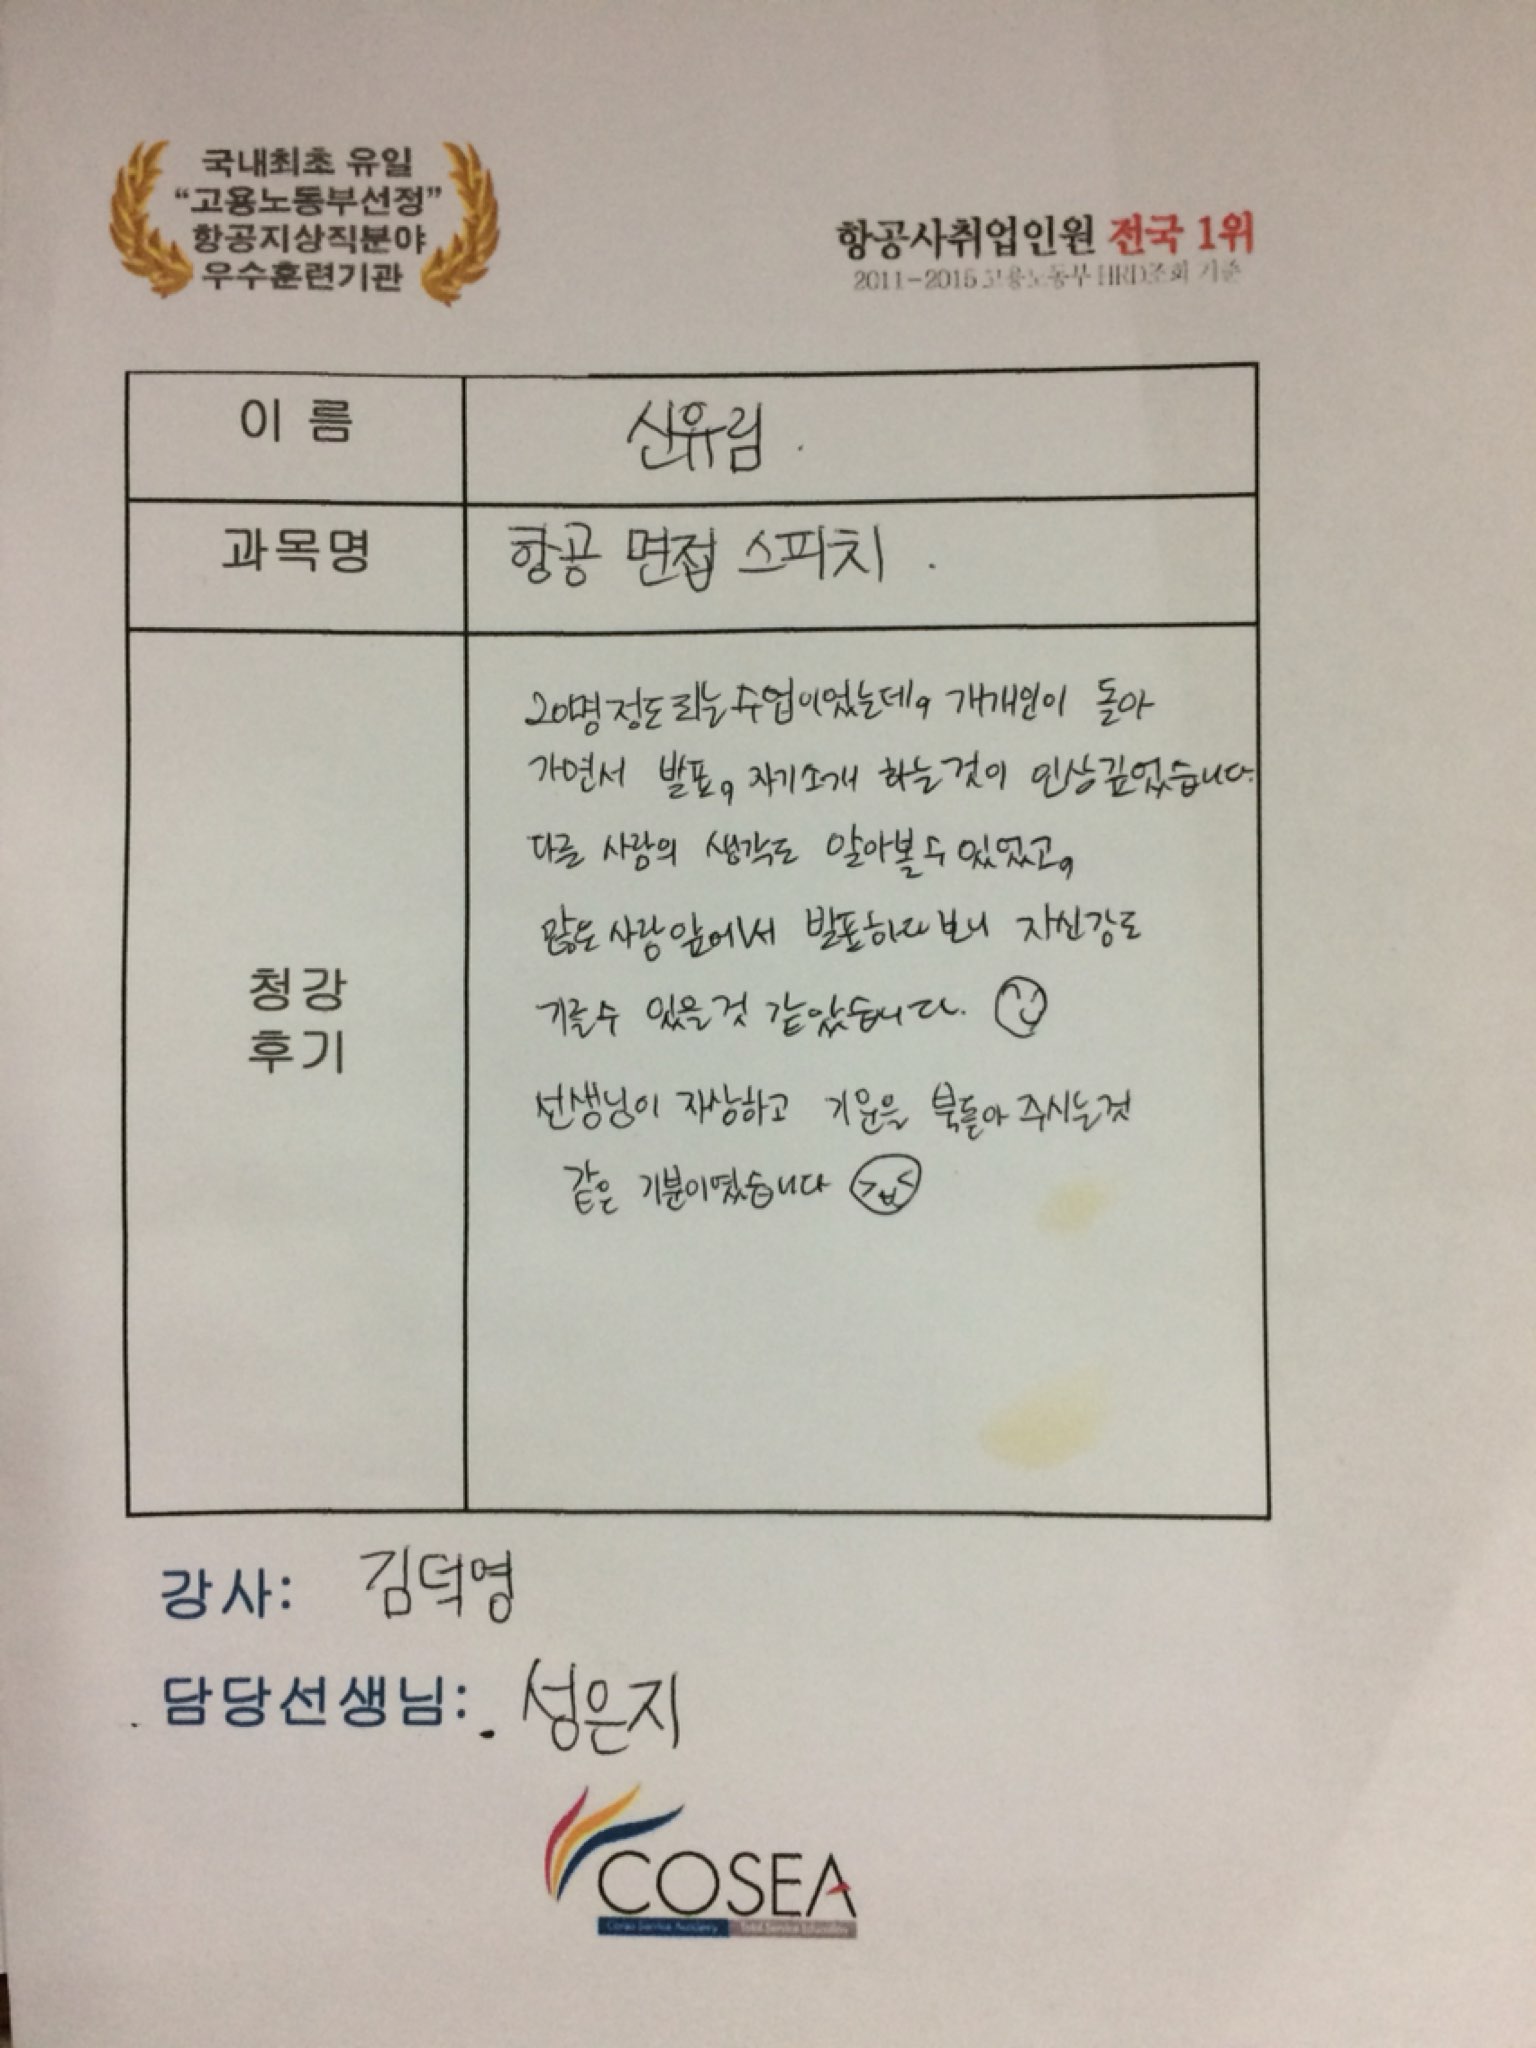 국내최초 유일
“고용노동부선정”
항공지상직분야
우수훈련기관
항공사취업인원 전국 1위
2011-2015 고용노동부 HRD조회 기준
이 름
신유림 .
과목명
항공 면접 스피치 .
청강
후기
20명정도 되는 수업이었는데, 개개인이 돌아
가면서 발표, 자기소개 하는것이 인상깊었습니다.
다른 사람의 생각도 알아볼수 있었고,
많은 사람앞에서 발표하다보니 자신감도
기를수 있을것 같았습니다.
선생님이 자상하고 기운을 북돋아 주시는것
같은 기분이였습니다
강사: 김덕영
담당선생님: 성은지
COSEA
Korea Service Academy Total Service Education